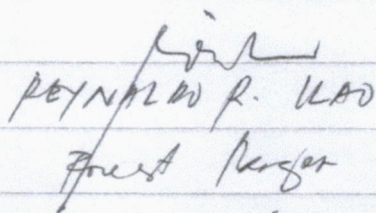 REYNALDO R. ILAO
Forest Ranger